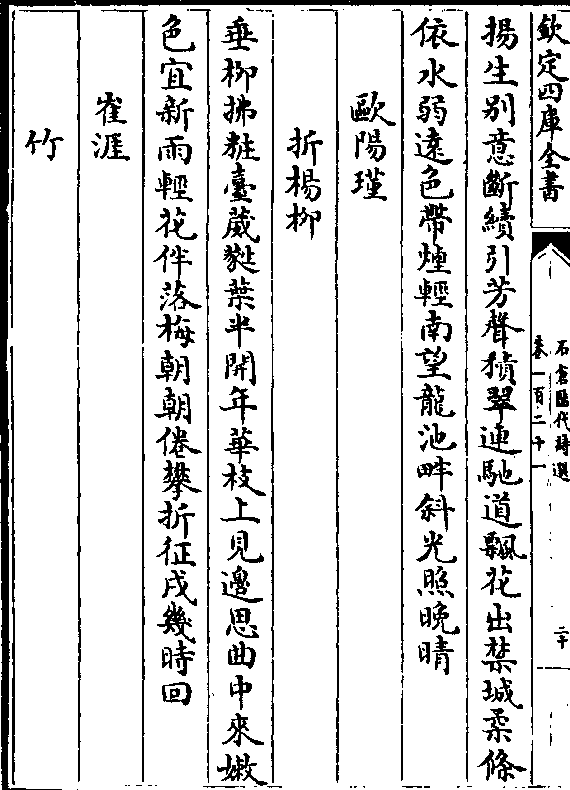 欽定四庫全書
石倉歴代詩選
卷一百二十一
二十
揚生别意斷續引芳聲積翠連馳道飄花出禁城柔條
依水弱遠色帶煙輕南望龍池畔斜光照晚晴
歐陽瑾
折楊柳
垂柳拂粧臺葳蕤葉半開年華枝上見邊思曲中來嫩
色宜新雨輕花伴落梅朝朝倦攀折征戍幾時回
崔涯
竹